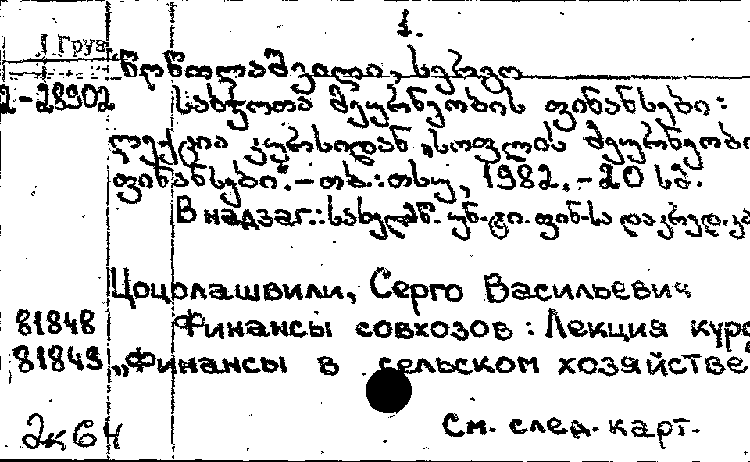 1.
1 Груз.
წოწოლაშვილი, სერგო
2-28902 საბჭოთა მეურნეობის ფინანსები:
ლექცია კურსიდან „სოფლის მეურნეობის
ფინანსები“.-თბ.:თსუ, 1982.-20 სმ.
В надзаг.: სახელმწ. უნ-ტი. ფინ-სა და კრედ.
Цоцолашвили, Серго Васильевич
81848 Финансы совхозов: Лекция курса
81849 „Финансы в сельском хозяйстве
2к64 См. след. карт.